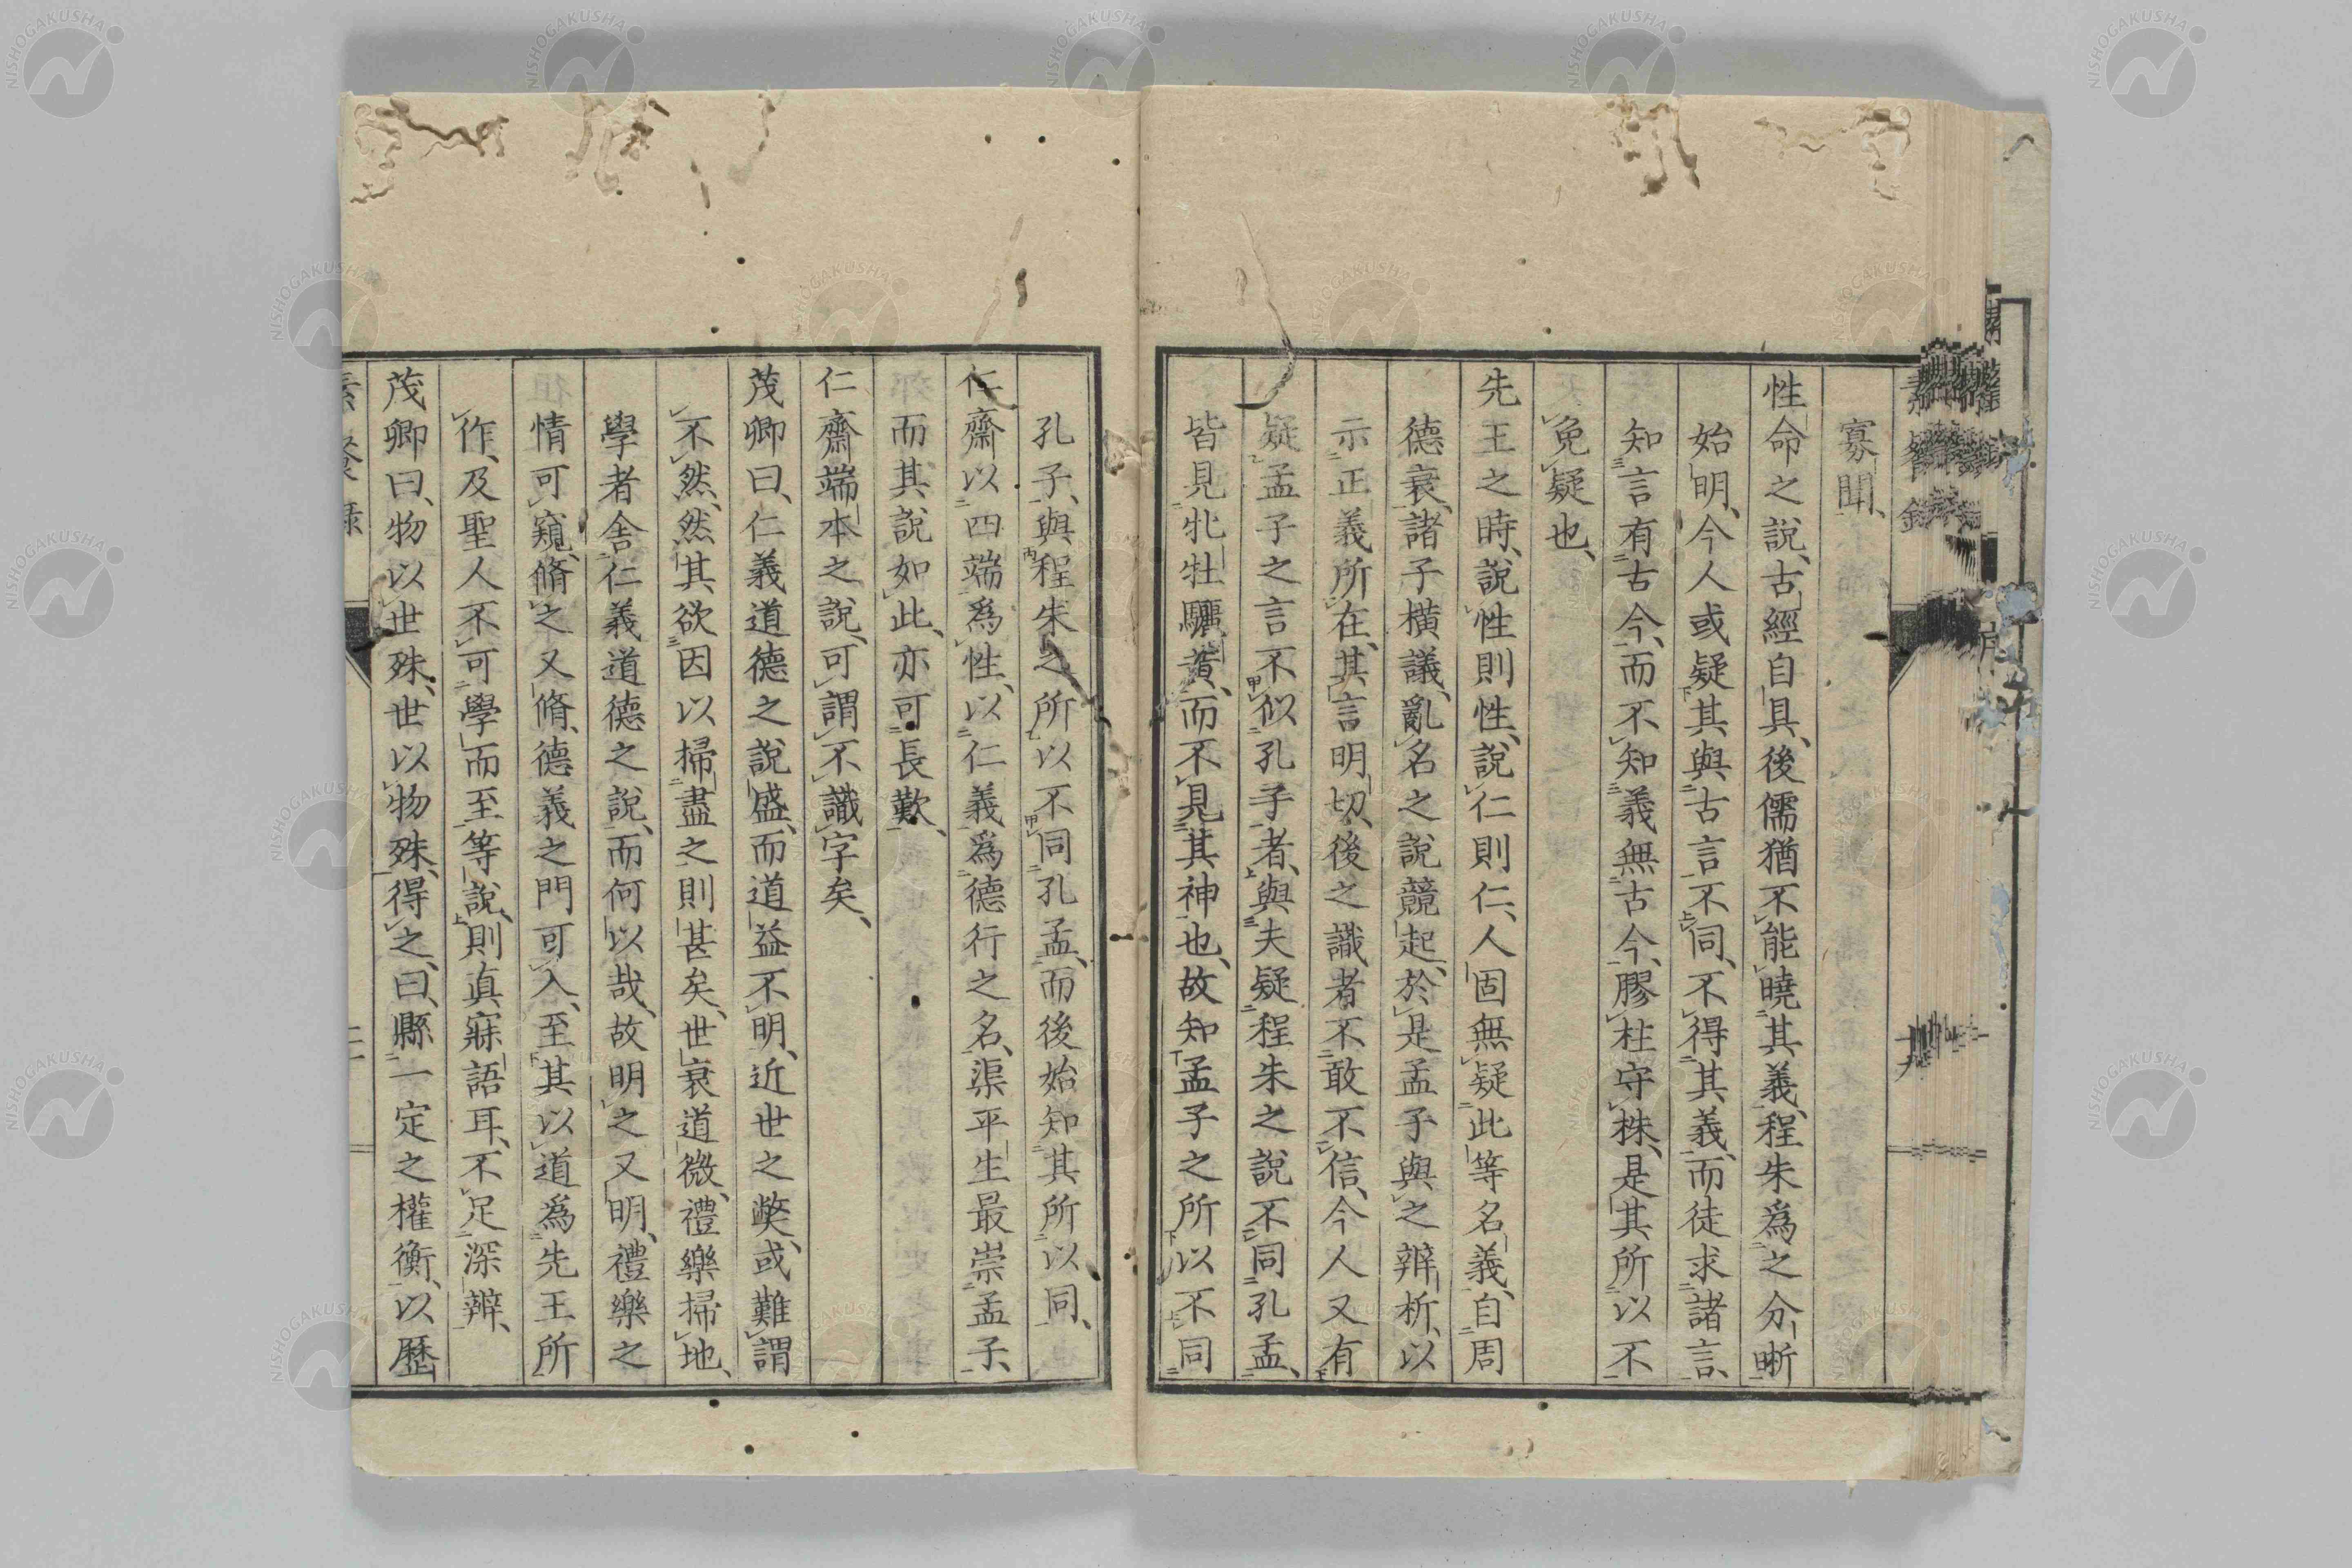 寡聞、
性命之說、古經自具、後儒猶不能曉其義、程朱爲之分晰
始明、今人或疑其與古言不同、不得其義、而徒求諸言、
知言有古今、而不知義無古今、膠柱守株、是其所以不
免疑也、
先王之時、說性則性、說仁則仁、人固無疑此等名義、自周
德衰、諸子橫議、亂名之說競起、於是孟子與之辨析、以
示正義所在、其言明切、後之識者不敢不信、今人又有
疑孟子之言不似孔子者、與夫疑程朱之說不同孔孟、
皆見牝牡驪黃、而不見其神也、故知孟子之所以不同
孔子、與程朱之所以不同孔孟、而後始知其所以同、
仁齋以四端爲性、以仁義爲德行之名、渠平生最崇孟子、
而其說如此、亦可長歎、
仁齋端本之說、可謂不識字矣、
茂卿曰、仁義道德之說盛、而道益不明、近世之弊、或難謂
不然、然其欲因以掃盡之則甚矣、世衰道微、禮樂掃地、
學者舍仁義道德之說、而何以哉、故明之又明、禮樂之
情可窺、脩之又脩、德義之門可入、至其以道爲先王所
作、及聖人不可學而至等說、則真寐語耳、不足深辨、
茂卿曰、物以世殊、世以物殊、得之、曰、縣一定之權衡、以歷